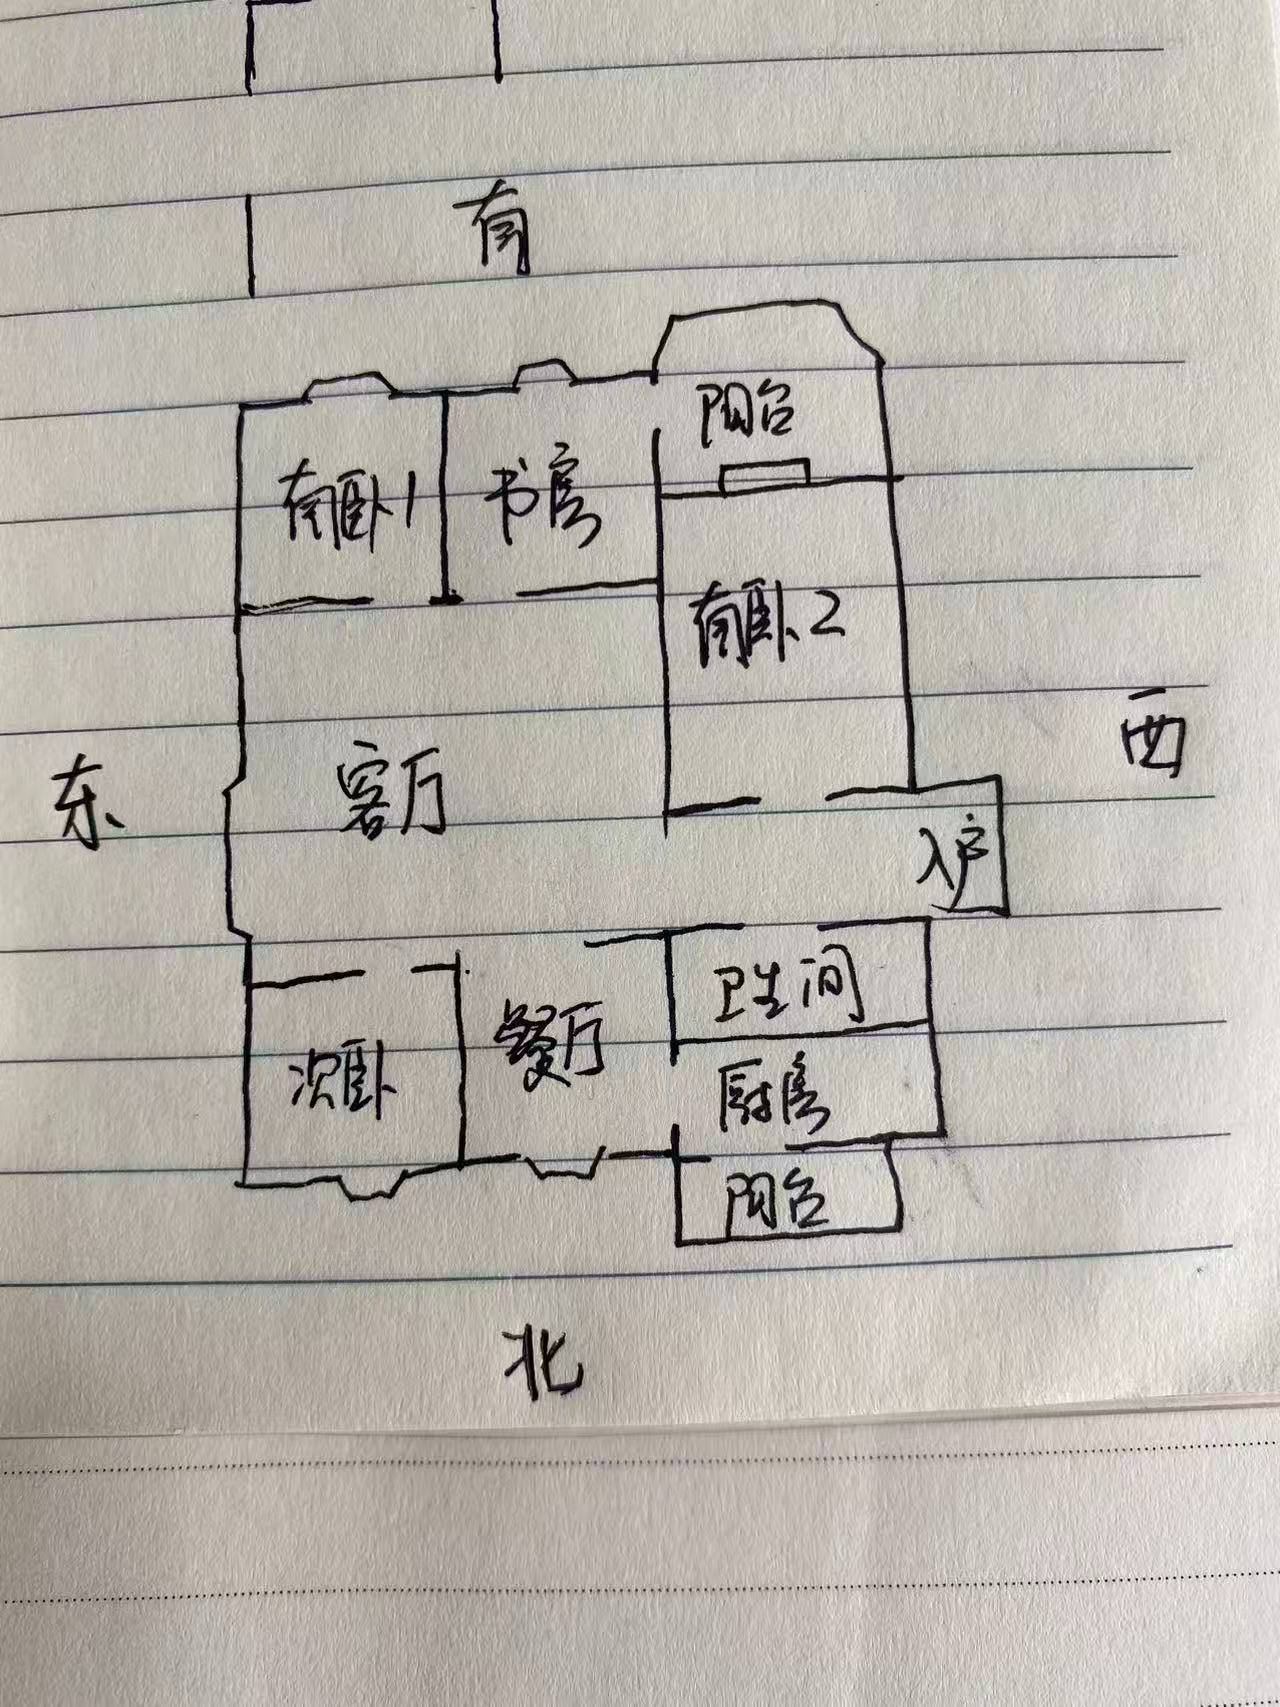 南
阳台
南卧1
书房
南卧2
西
东
客厅
入户
卫生间
餐厅
次卧
厨房
阳台
北